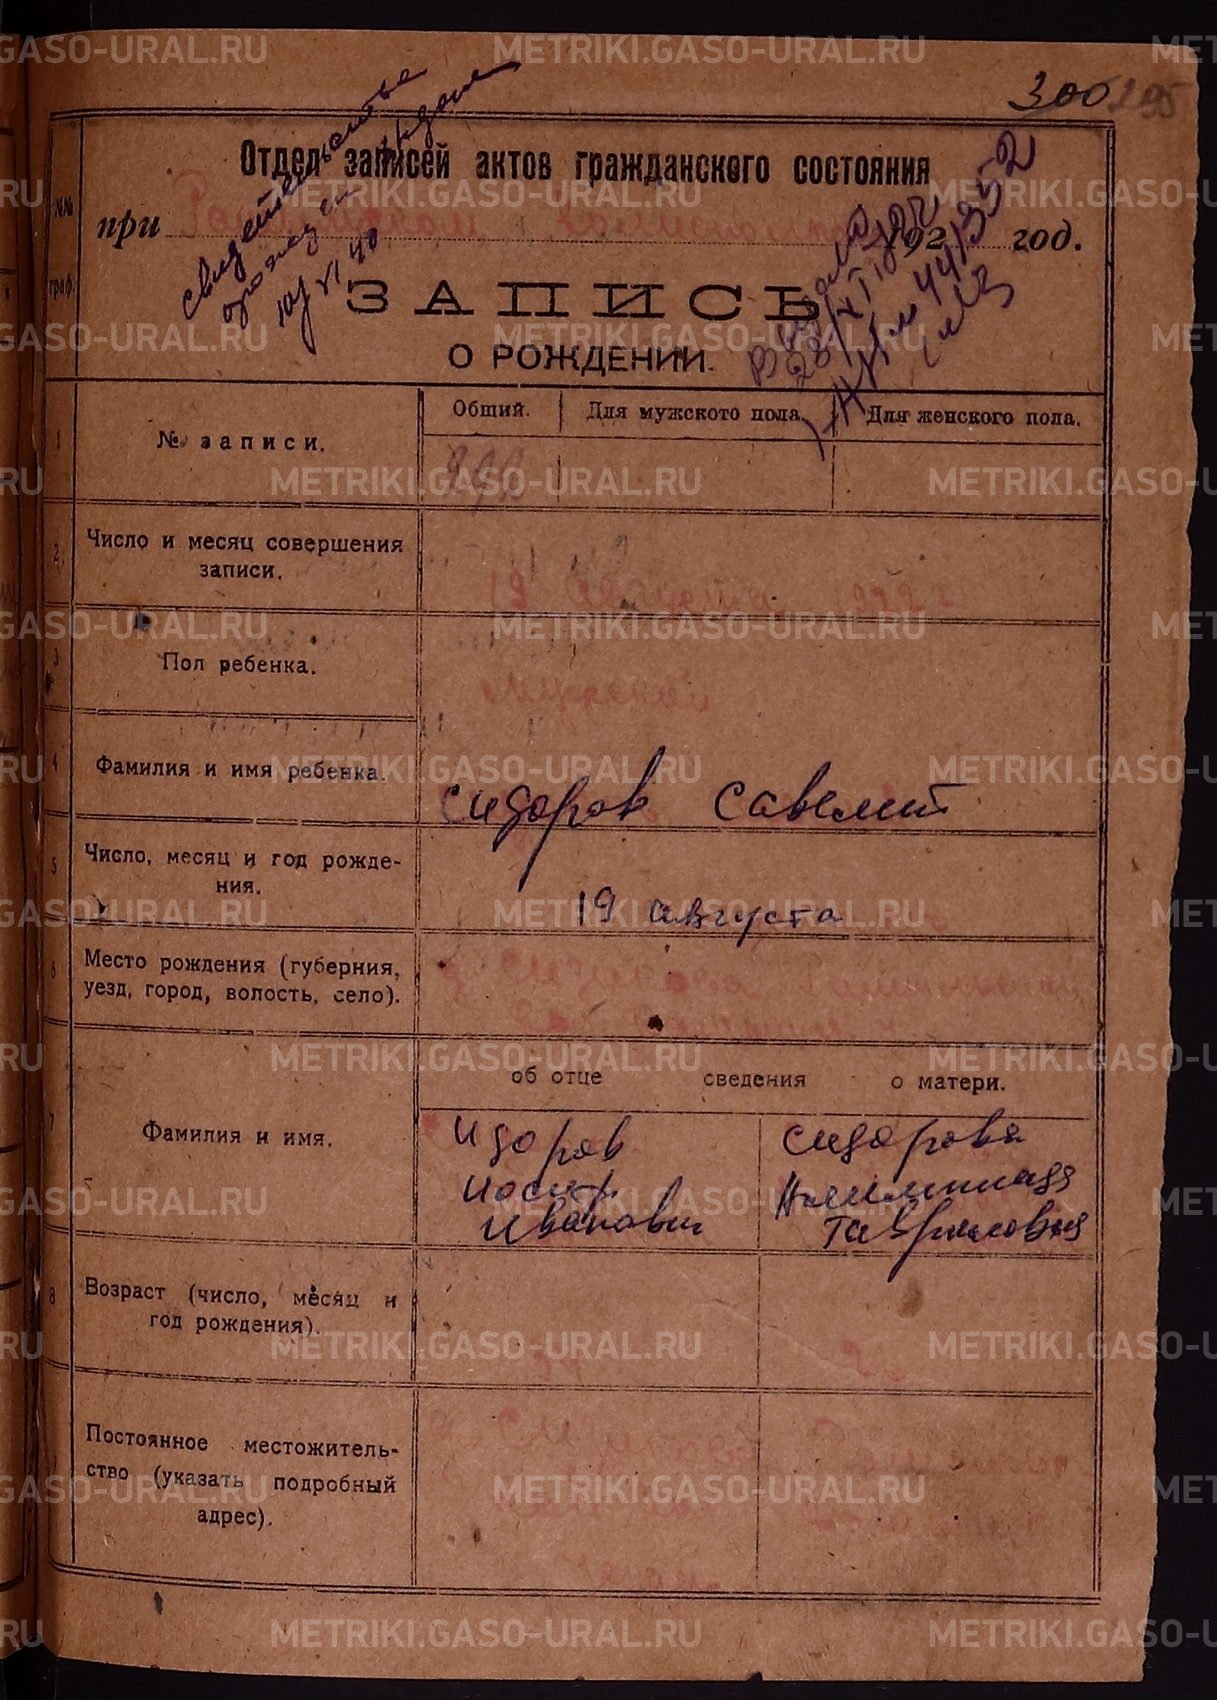 300 295
Отдел записей актов гражданского состояния
при 192 год.
свидетельство
о рождении выдано
10/VI 40
№№
граф.
ЗАПИСЬ
О РОЖДЕНИИ.
1
№ записи.
Общий.
Для мужского пола
Для женского пола.
292
2
Число и месяц совершения
записи.
3
Пол ребенка.
4
Фамилия и имя ребенка.
Сидоров Савелий
5
Число, месяц и год рожде-
ния.
19 августа
6
Место рождения (губерния,
уезд, город, волость, село).
об отце сведения о матери.
7
Фамилия и имя.
Идоров
Иосиф
Иванович
Сидорова
Гавриловна
8
Возраст (число, месяц и
год рождения).
Постоянное местожитель-
ство (указать подробный
адрес).
METRIKI.GASO-URAL.RU